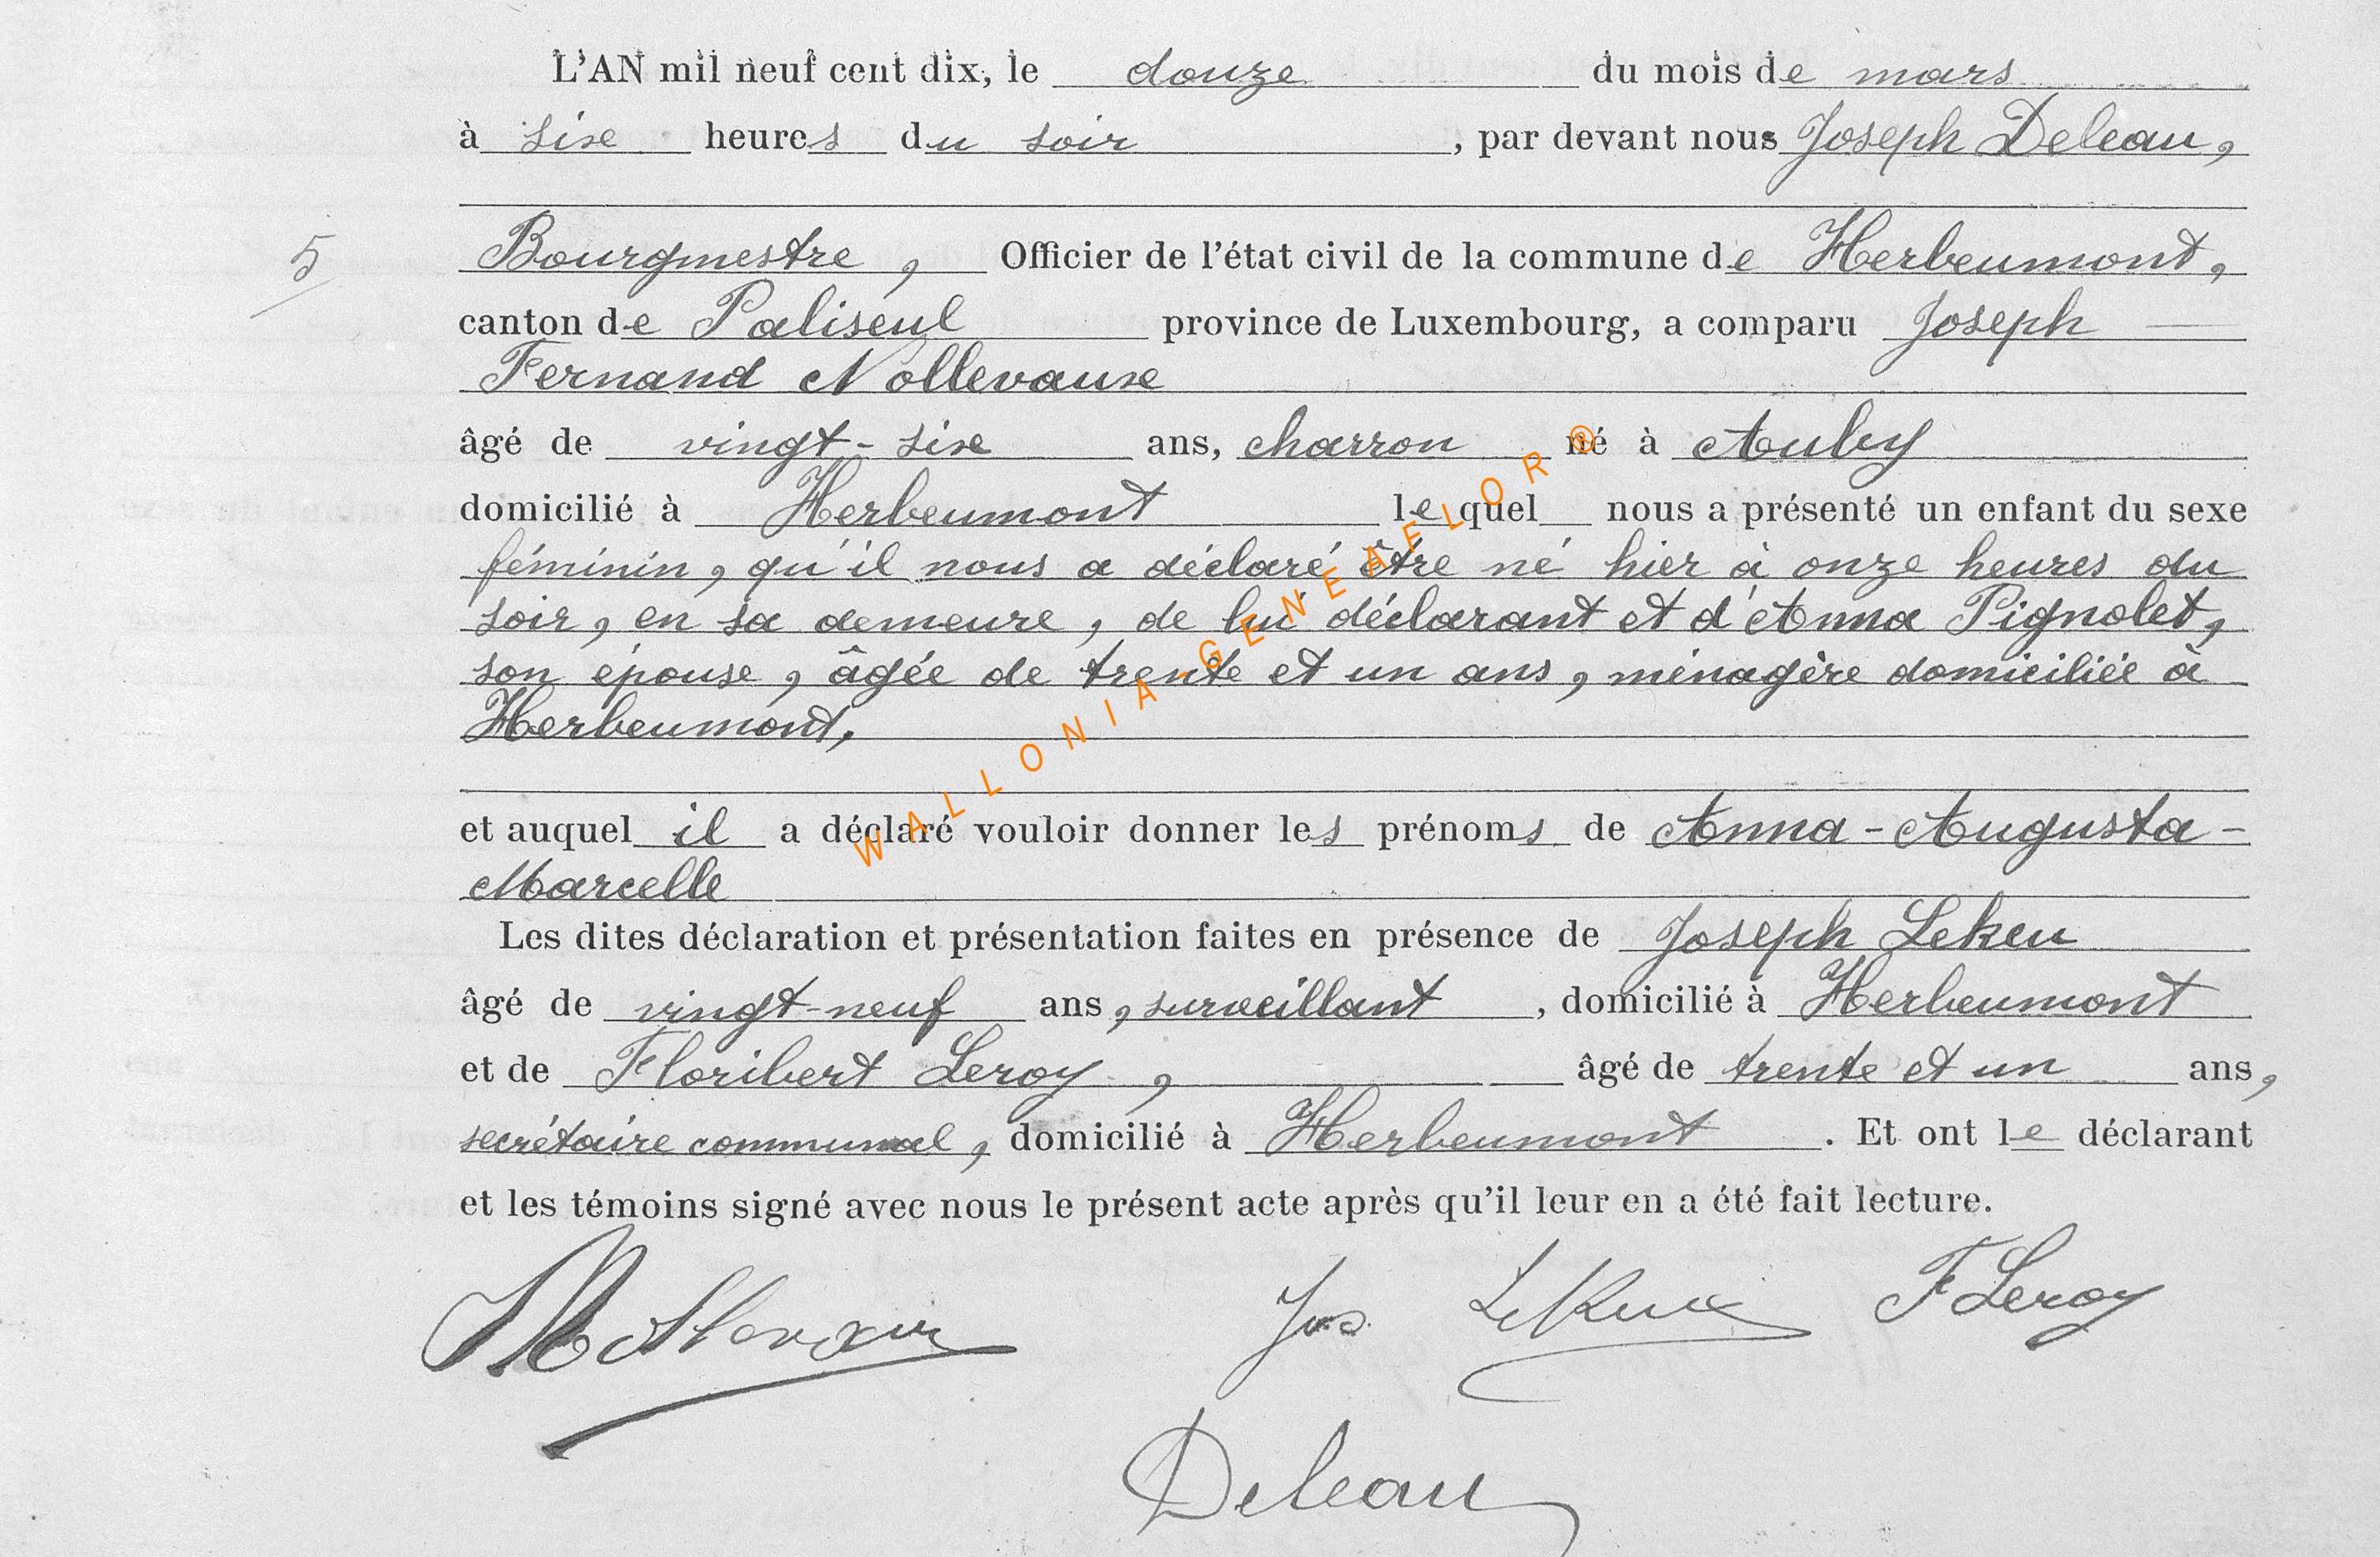 L'AN mil neuf cent dix, le douze du mois de mars
à six heures du soir, par devant nous Joseph Deleau,
5
Bourgmestre, Officier de l'état civil de la commune de Herbeumont,
canton de Paliseul province de Luxembourg, a comparu Joseph
Fernand Nollevaux
âgé de vingt-six ans, charron né à Auby
domicilié à Herbeumont lequel nous a présenté un enfant du sexe
féminin, qu'il nous a déclaré être né hier à onze heures du
soir, en sa demeure, de lui déclarant et d'Anna Pignolet,
son épouse, âgée de trente et un ans, ménagère domiciliée à
Herbeumont,
et auquel il a déclaré vouloir donner les prénoms de Anna-Augusta-
Marcelle
Les dites déclaration et présentation faites en présence de Joseph Lekeu
âgé de vingt-neuf ans, surveillant, domicilié à Herbeumont
et de Floribert Leroy, âgé de trente et un ans,
secrétaire communal, domicilié à Herbeumont. Et ont le déclarant
et les témoins signé avec nous le présent acte après qu'il leur en a été fait lecture.
Nollevaux Jos LeKeux F Leroy
Deleau
WALLONIA-GENEAFLOR®